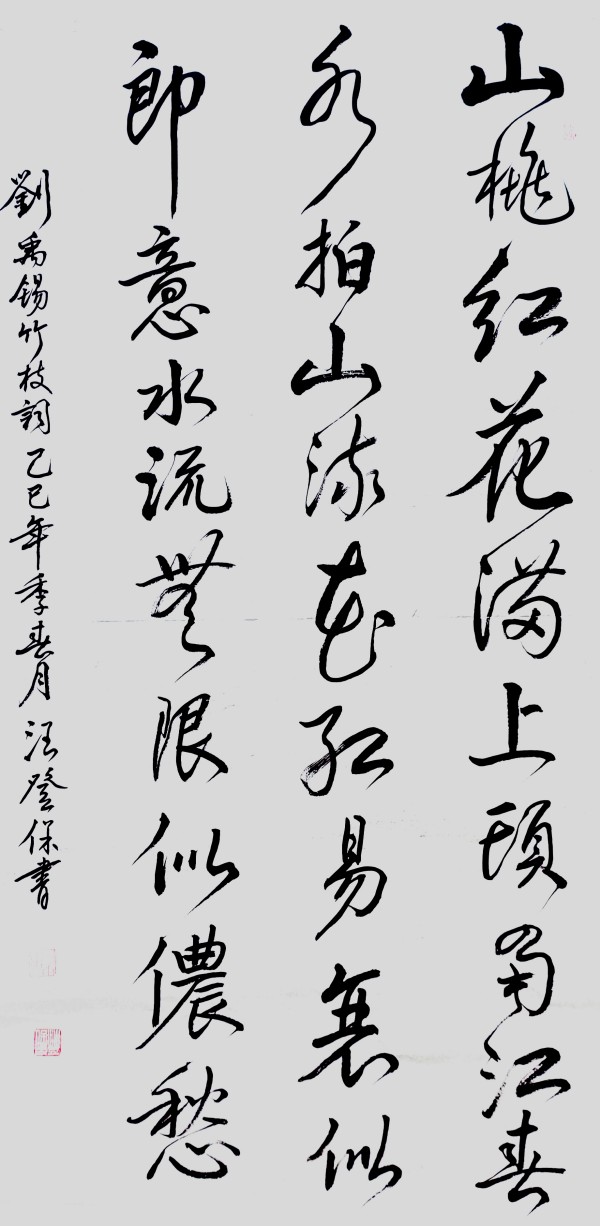 山桃紅花滿上頭蜀江春
水拍山流花紅易衰似
郎意水流無限似儂愁
劉禹錫竹枝詞乙巳年季春月汪登保書